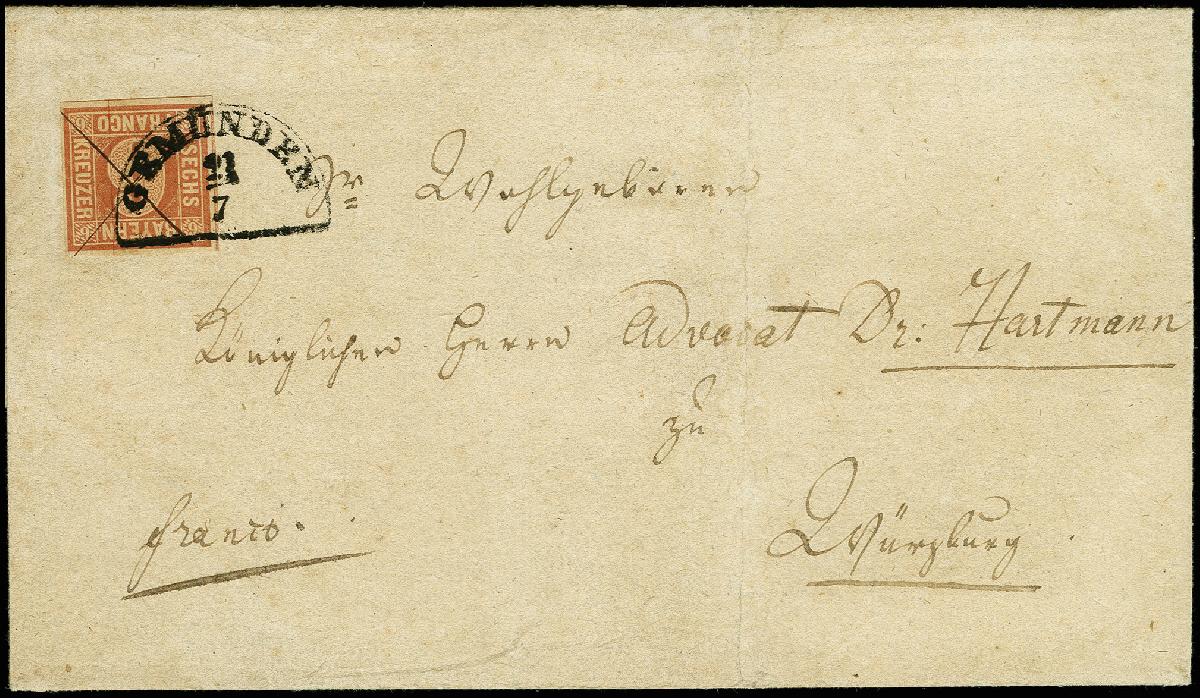 FRANCO
SECHS
BAYERN
KREUZER
6 6 6 6
GEMÜNDEN
21
7
Sr Wohlgeboren
Königlichen Herrn Advocat Dr: Hartmann
zu
Würzburg
franco.